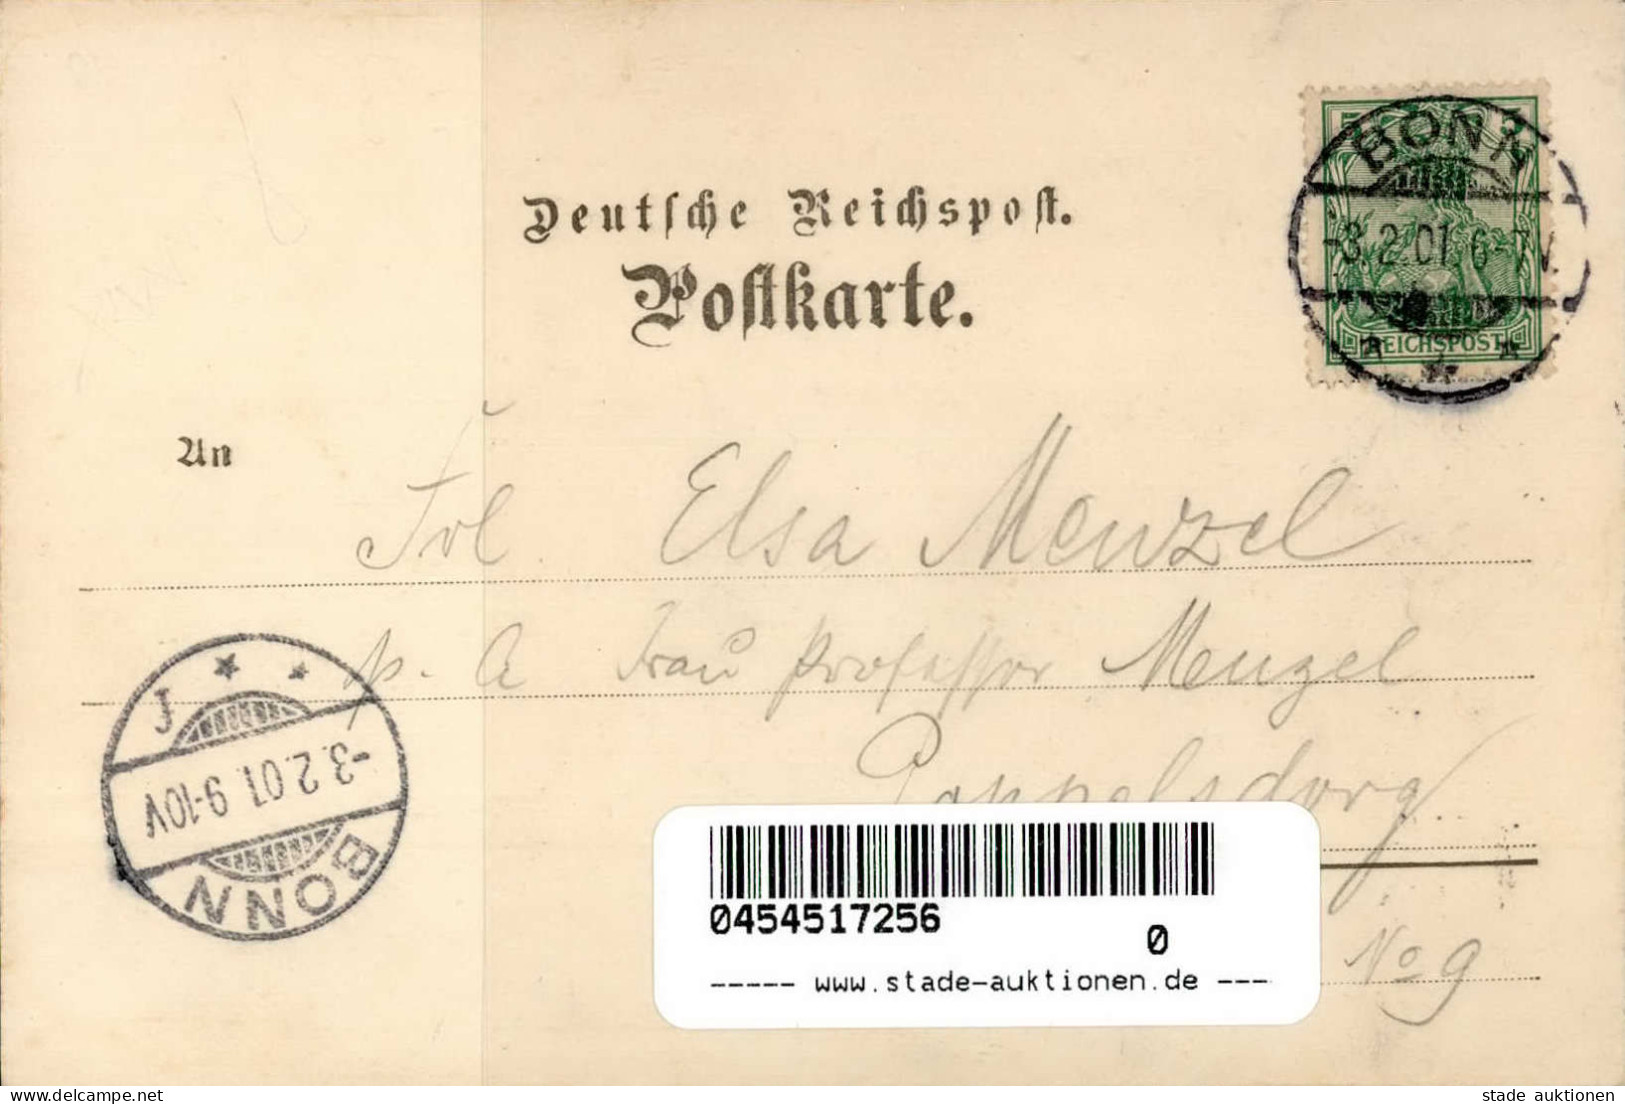 BONN
5 5
-3.2.01 6-7V.
REICHSPOST
Deutsche Reichspost.
Postkarte.
An
Frl. Elsa Menzel
p. A Frau Professor Menzel
Poppelsdorf
No 9
J
-3.2.01. 9-10V
BONN
0454517256
0
----- www.stade-auktionen.de ---
stade auktionen